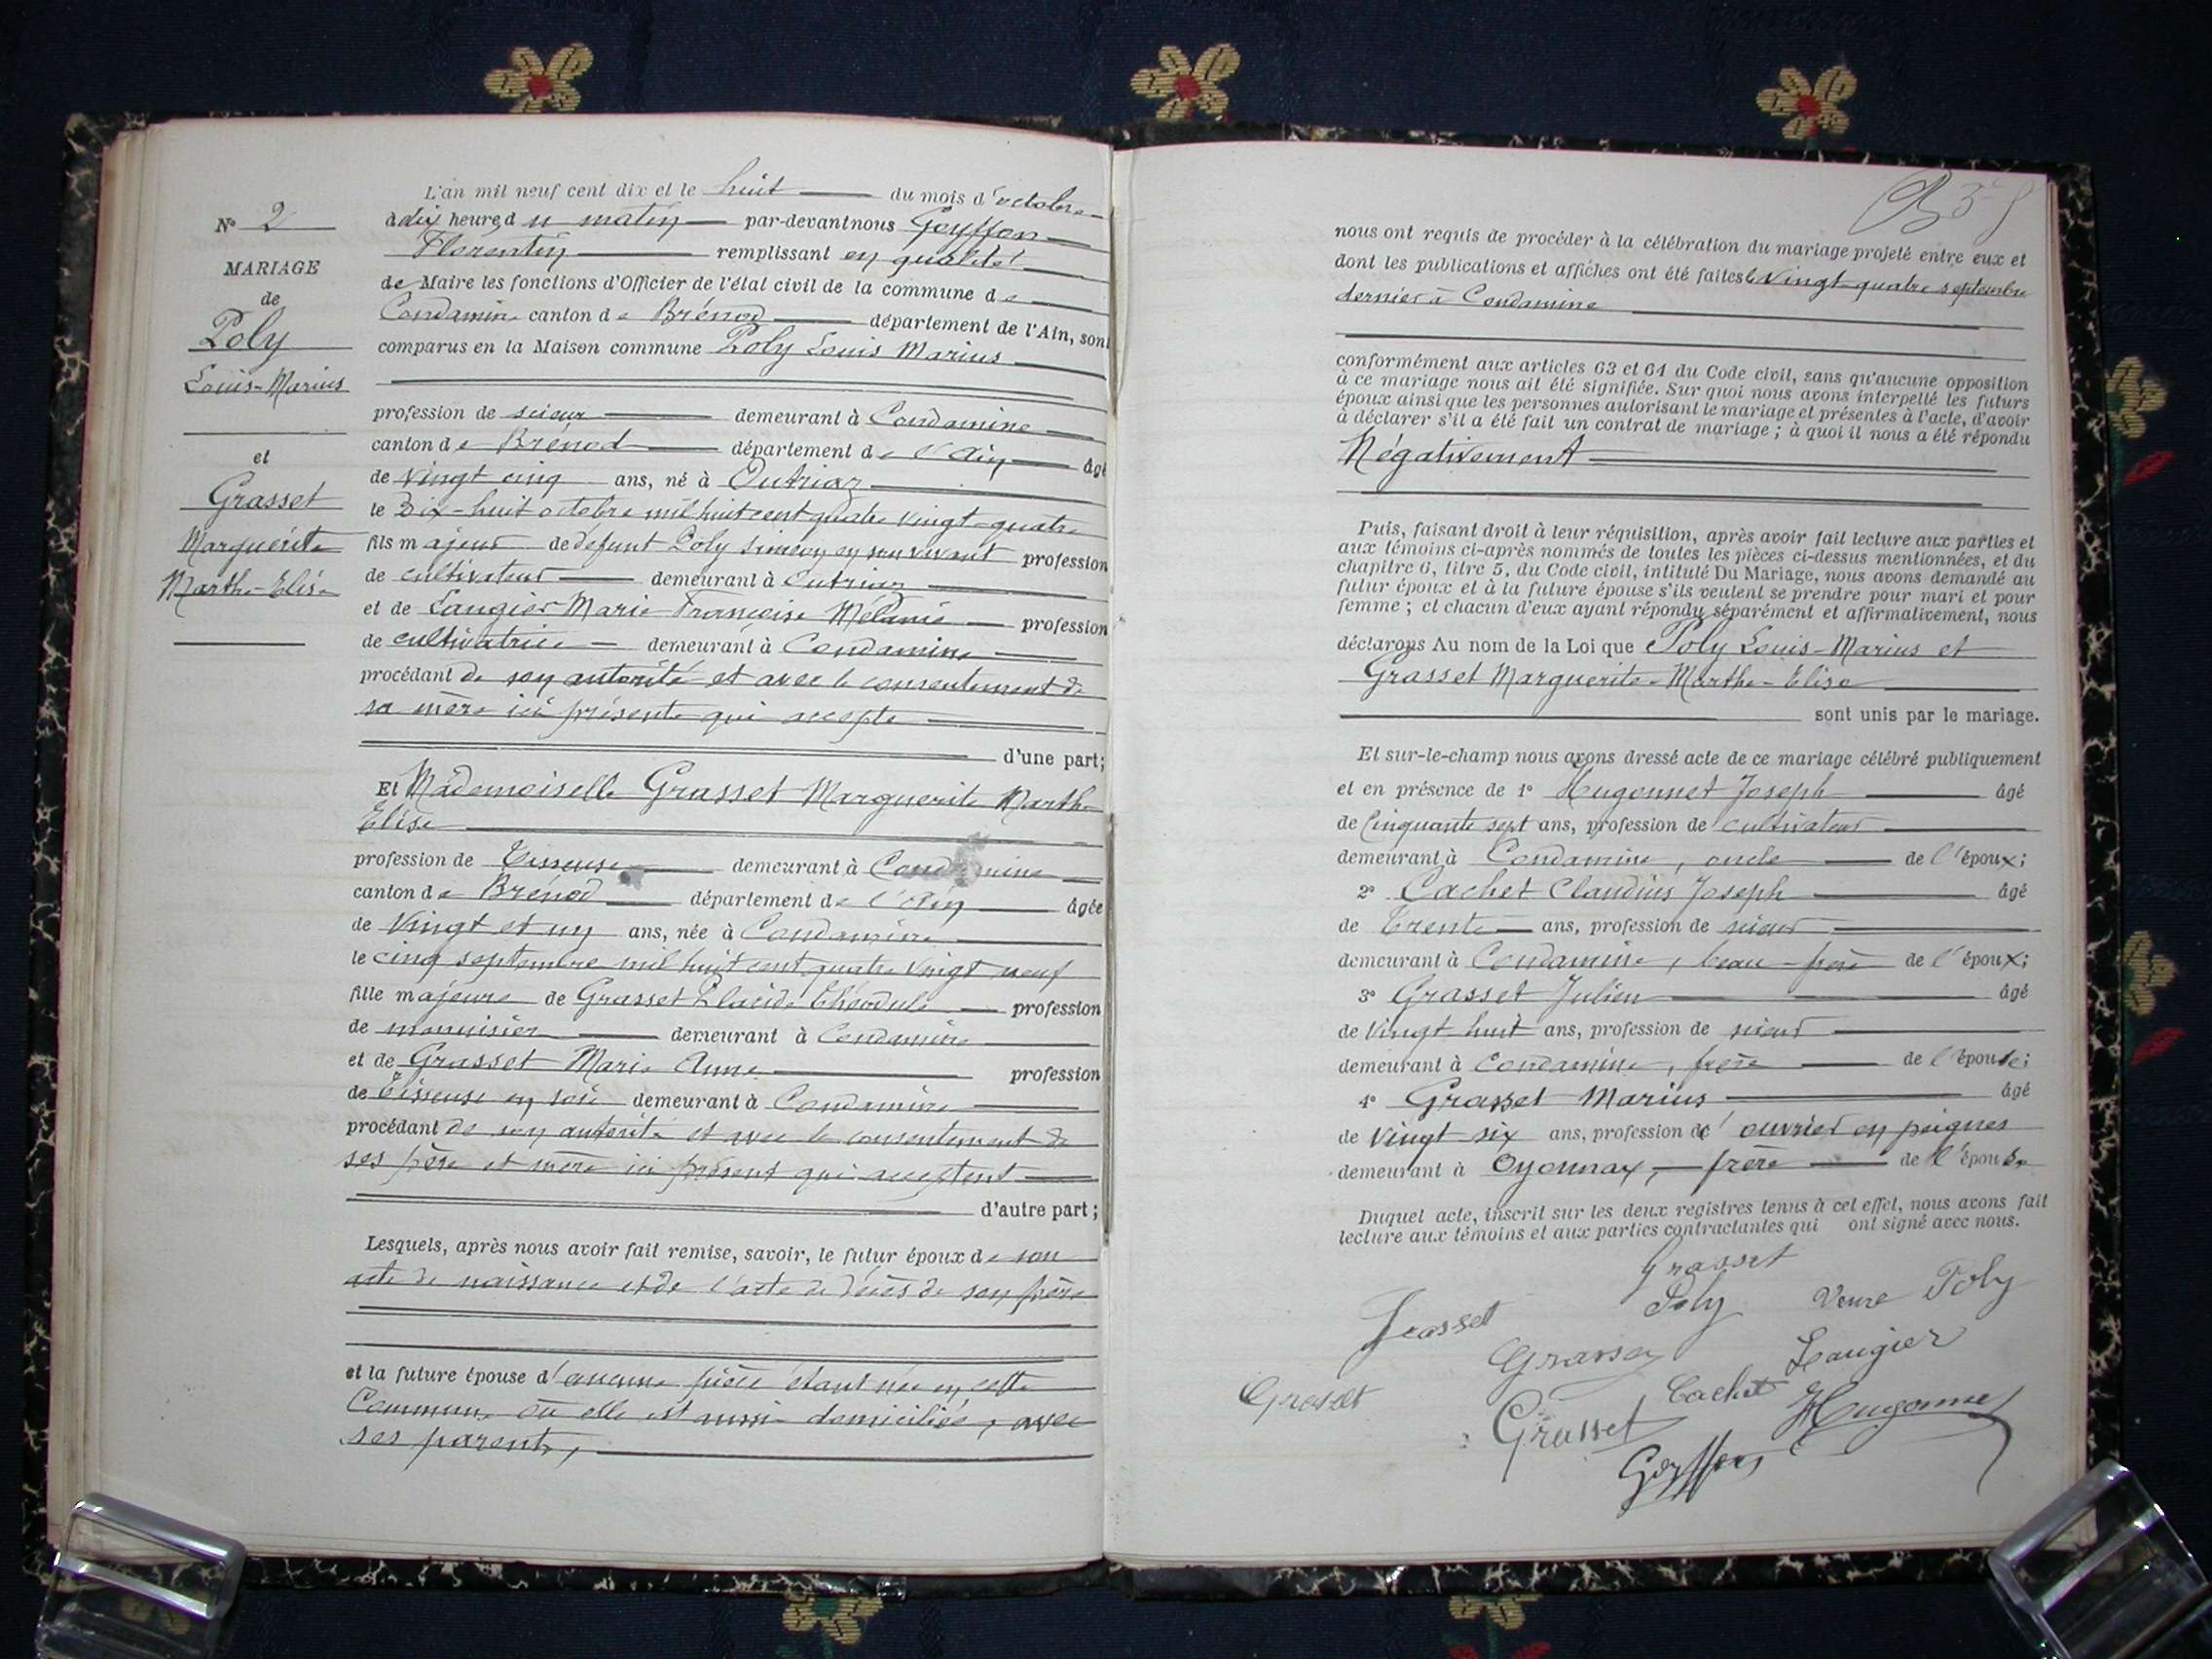 N° 2
MARIAGE
de
Poly
Louis-Marius
et
Grasset
Marguerite
Marthe-Elise
L'an mil neuf cent dix et le huit du mois d'octobre
à dix heures du matin par-devant nous Goyffon
Florentin remplissant en qualité
de Maire les fonctions d'Officier de l'état civil de la commune de
Condamine canton de Brénod département de l'Ain, sont
comparus en la Maison commune Poly Louis Marius
profession de scieur demeurant à Condamine
canton de Brénod département de l'Ain âgé
de vingt cinq ans, né à Outriaz
le Dix-huit octobre mil huit cent quatre vingt-quatre
fils majeur de défunt Poly Siméon en son vivant profession
de cultivateur demeurant à Outriaz
et de Laugier Marie Françoise Mélanie profession
de cultivatrice demeurant à Condamine
procédant de son autorité et avec le consentement de
sa mère ici présente qui accepte
d'une part;
Et Mademoiselle Grasset Marguerite Marthe
Elise
profession de Tisseuse demeurant à Condamine
canton de Brénod département de l'Ain âgée
de Vingt et un ans, née à Condamine
le cinq septembre mil huit cent quatre vingt neuf
fille majeure de Grasset Placide Théodule profession
de menuisier demeurant à Condamine
et de Grasset Marie Anne profession
de Tisseuse en soie demeurant à Condamine
procédant de son autorité et avec le consentement de
ses père et mère ici présent qui acceptent
d'autre part;
Lesquels, après nous avoir fait remise, savoir, le futur époux de son
acte de naissance et de l'acte de décès de son père
et la future épouse d'aucune pièce étant née en cette
Commune où elle est aussi domiciliée, avec
ses parents,
nous ont requis de procéder à la célébration du mariage projeté entre eux et
dont les publications et affiches ont été faites le Vingt-quatre septembre
dernier à Condamine
conformément aux articles 63 et 64 du Code civil, sans qu'aucune opposition
à ce mariage nous ait été signifiée. Sur quoi nous avons interpellé les futurs
époux ainsi que les personnes autorisant le mariage et présentes à l'acte, d'avoir
à déclarer s'il a été fait un contrat de mariage; à quoi il nous a été répondu
Négativement
Puis, faisant droit à leur réquisition, après avoir fait lecture aux parties et
aux témoins ci-après nommés de toutes les pièces ci-dessus mentionnées, et du
chapitre 6, titre 5, du Code civil, intitulé Du Mariage, nous avons demandé au
futur époux et à la future épouse s'ils veulent se prendre pour mari et pour
femme; et chacun d'eux ayant répondu séparément et affirmativement, nous
déclarons Au nom de la Loi que Poly Louis-Marius et
Grasset Marguerite-Marthe-Elise
sont unis par le mariage.
Et sur-le-champ nous avons dressé acte de ce mariage célébré publiquement
et en présence de 1° Hugonnet Joseph âgé
de Cinquante sept ans, profession de cultivateur
demeurant à Condamine, oncle de l'époux;
2° Cachet Claudius Joseph âgé
de Trente ans, profession de scieur
demeurant à Condamine, beau-frère de l'époux;
3° Grasset Julien âgé
de Vingt huit ans, profession de scieur
demeurant à Condamine, frère de l'épouse;
4° Grasset Marius âgé
de Vingt six ans, profession d'ouvrier en peignes
demeurant à Oyonnax, frère de l'épouse
Duquel acte, inscrit sur les deux registres tenus à cet effet, nous avons fait
lecture aux témoins et aux parties contractantes qui ont signé avec nous.
Grasset
Grasset Poly Veuve Poly
Grasset Laugier
Grasset Cachet Hugonnet
Grasset
Goyffon